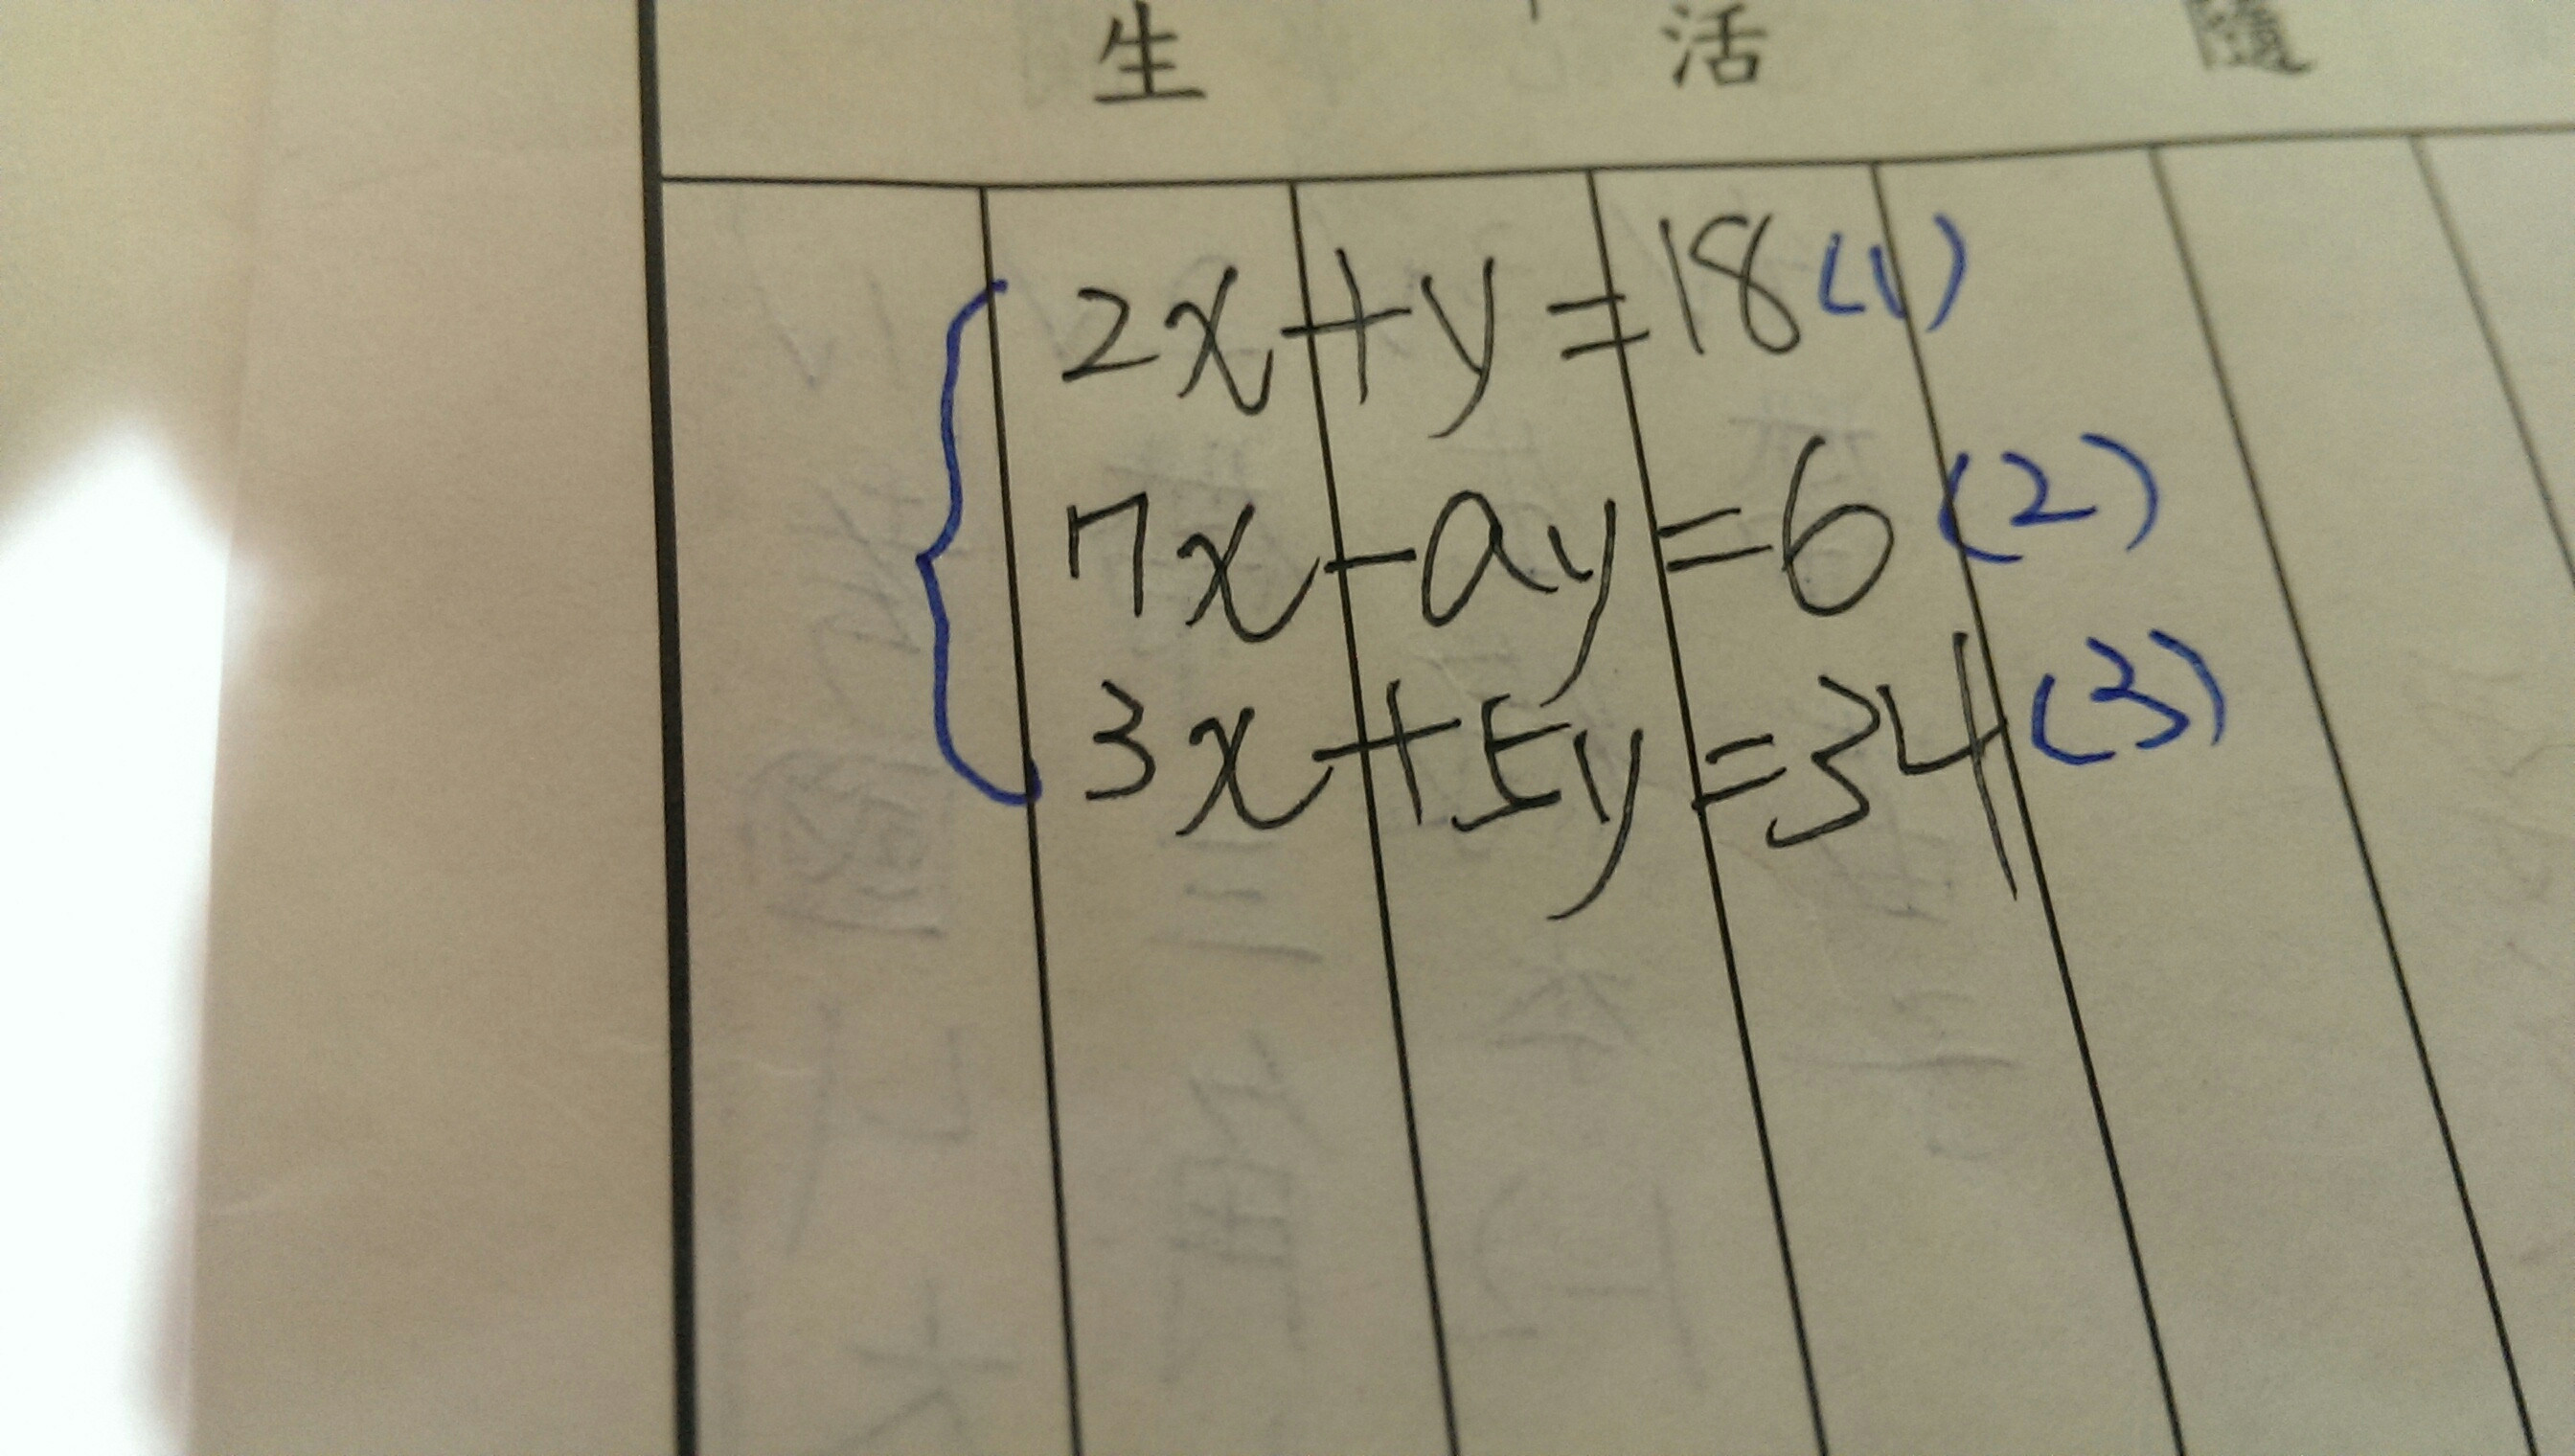 生 活
2x+y=18(1)
7x-ay=6 (2)
3x+5y=34 (3)